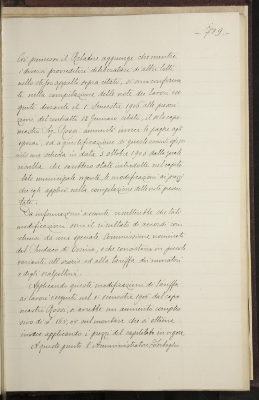 - 709 -
Ciò premesso il Relatore aggiunge che mentre
i diversi provveditori deliberatari di altri lotti
nelle stesse appalto sopra citato, si sono conforma
ti nella compilazione delle note dei lavori ese
guiti durante il 1° Semestre 1906 alle prescri
zioni del contratto 12 Gennaio citato, il solo capo
mastro Rosa aumentò invece le paghe agli
operai, ed a giustificazione di questo
una scheda in data 3 ottobre 1905 dalla quale
risulta che sarebbero state introdotte nel capito
lato municipale vigente, le modificazioni ai prezzi
da egli applicati nella compilazione delle note presen
tate.
Da informazioni assunte risulterebbe che tali
modificazioni sono il risultato di accordi con
chiusi da una speciale Commissione nominata
dal Sindaco di Torino, e che consistono in piccole
varianti all'orario ed alla tariffa dei muratori
e degli scalpellini.
Applicando queste modificazioni di tariffa
ai lavori eseguiti nel 1° semestre 1906 dal capo
mastro Rosa, si avrebbe un aumento comples
sivo di L. in sul montare che si ottiene
invece applicando i prezzi del capitolato in vigore.
A questo punto l'Amministratore